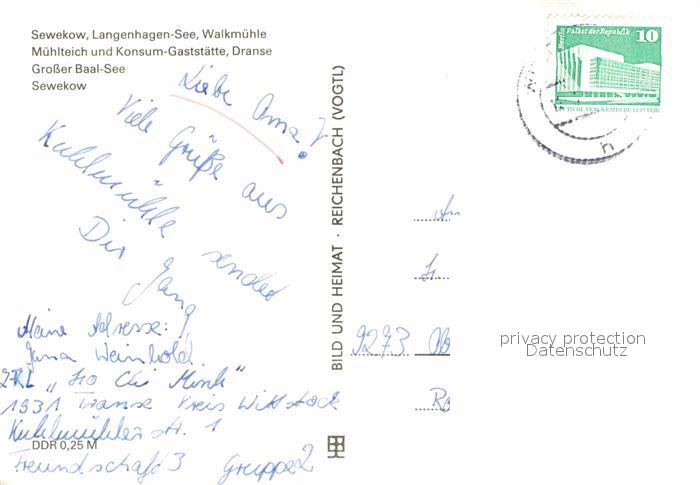 Sewekow, Langenhagen-See, Walkmühle
Mühlteich und Konsum-Gaststätte, Dranse
Großer Baal-See
Sewekow
Liebe Oma!
Viele Grüße aus
Kuhlmühle sendet
Dir Jana
Meine Adresse:
Jana Weinhold
ZPL „Ho Chi Minh“
1931 Transe Kreis Wittstock
Kuhlmühler str. 1
Freundschaft 3 Gruppe 2
DDR 0,25 M
BILD UND HEIMAT · REICHENBACH (VOGTL)
Berlin
Palast der Republik
10
DEUTSCHE DEMOKRATISCHE REPUBLIK
h
Fr.
9273
privacy protection
Datenschutz